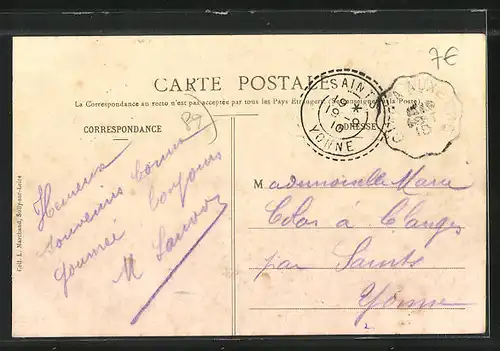 7€
CARTE POSTALE
La Correspondance au recto n'est pas acceptée par tous les Pays Étrangers (Se renseigner à la Poste)
CORRESPONDANCE
ADRESSE
89
SAINTS
19
YONNE
Heureux
souvenirs bonne
journée toujours
M
Mademoiselle Marie
Colas à
par Saints
Yonne
Coll. L. Marchand, Sully-sur-Loire